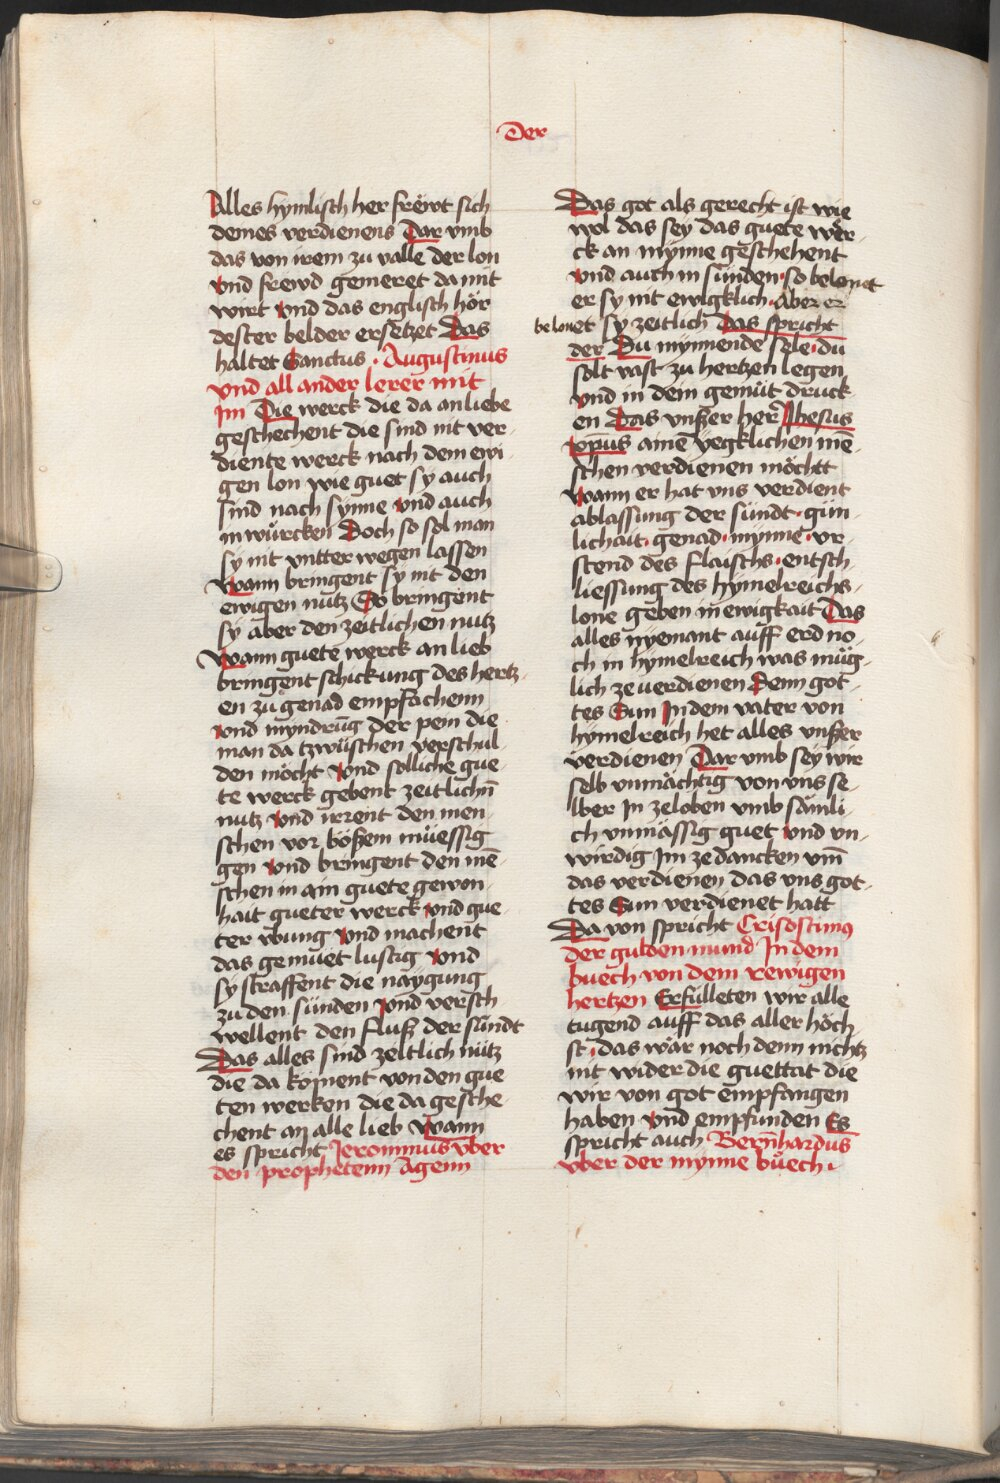 Der
Alles hymlisch her frewt sich
deines verdienens Dar vmb
das von irem zu valle der lon
vnd frewd gemeret da mit
wirt vnd das englisch hör
dester belder ersetzet Das
haltet Sanctus · Augustinus
vnd all ander lerer mit
Im Die werck die da an liebe
geschechent die sind nit ver
diente werck nach dem ewi
gen lon wie guet sy auch
sind nach synne vnd auch
in würcken Doch so sol man
sy nit vntter wegen lassen
Wann bringent sy nit den
ewigen nutz So bringent
sy aber den zeitlichen nutz
Wann guete werck an lieb
bringent schickung des hertz
en zu genad empfachenn
vnd myndrūg der pein die
man da tzwüschen verschul
den möcht vnd solliche gue
te werck gebent zeitlichn̄
nutz vnd irrent den men
schen vor bößem müessig
gen vnd bringent den mē
schen in ain guete gewon
hait gueter werck vnd gue
ter vbung vnd machent
das gemuet lustig vnd
sy straffent die naygung
zu den sünden vnd versch
wellent den fluß der sündt
Das alles sind zeitlich nütz
die da koment von den gue
ten werken die da gesche
chent an alle lieb Wann
es spricht Jeronimus vber
den prophetenn Ageum
Das got als gerecht ist wie
wol das sey das guete wer
ck an mynne geschehent
vnd auch in sunden · so belonet
er sy nit ewigklich · Aber er
belonet sy zeitlich Das spricht
der Du mynnende sele · du
solt vast zu hertzen legen
vnd in dein gemüt druck
en Das vnßer her Jhesus
xpus aine yegklichen mē
schen verdienen möchtt
Wann er hat vns verdient
ablassung der sündt · gün
lichait · genad · mynne · vr
stend des flaischs · entsch
liessung des hymelreichs
lone geben in ewigkait Das
alles nyemant auff erd no
ch in hymelreich was müg
lich ze verdienen Denn got
tes Sun In dem vater von
hymelreich het alles vnßer
verdienen Dar vmb sey wir
selb vnmächtig von vns se
lber In zeloben vmb sämli
ch vnmässig guet vnd vn
wirdig Im ze dancken vm̄
das verdienen das vns got
tes Sun verdienet hatt
Da von spricht Crisostimus
der gulden mund In dem
buech von dem rewigen
hertzen Erfulleten wir alle
tugend auff das aller höch
st · das wär noch denn nichtz
nit wider die guettat die
wir von got empfangen
haben vnd empfunden Es
spricht auch Bern̄hardus
vber der mynne büech ·